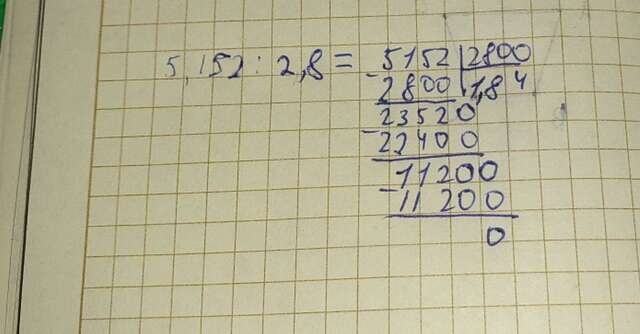 5,152 : 2,8 = 5152 | 2800
- 2800 | 1,84
23520
- 22400
11200
- 11200
0